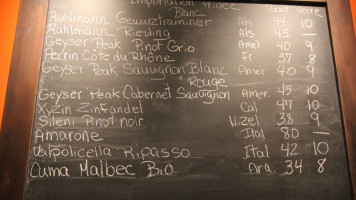 Importation Privée
Blanc Bout Verre
Ruhlmann Gewurztraminer Als 44 10
Ruhlmann Riesling Als 45 —
Geyser Peak Pinot Grio Amer 40 9
Perrin Côte du Rhône Fr 37 8
Geyser Peak Sauvignon Blanc Amer 40 9
Rouge
Geyser Peak Cabernet Sauvignon Amer. 45 10
XyZin Zinfandel Cal 47 10
Sileni Pinot noir N.zel 38 9
Amarone Ital 80 —
Valpolicella Ripasso Ital 42 10
Cuma Malbec Bio Arg 34 8